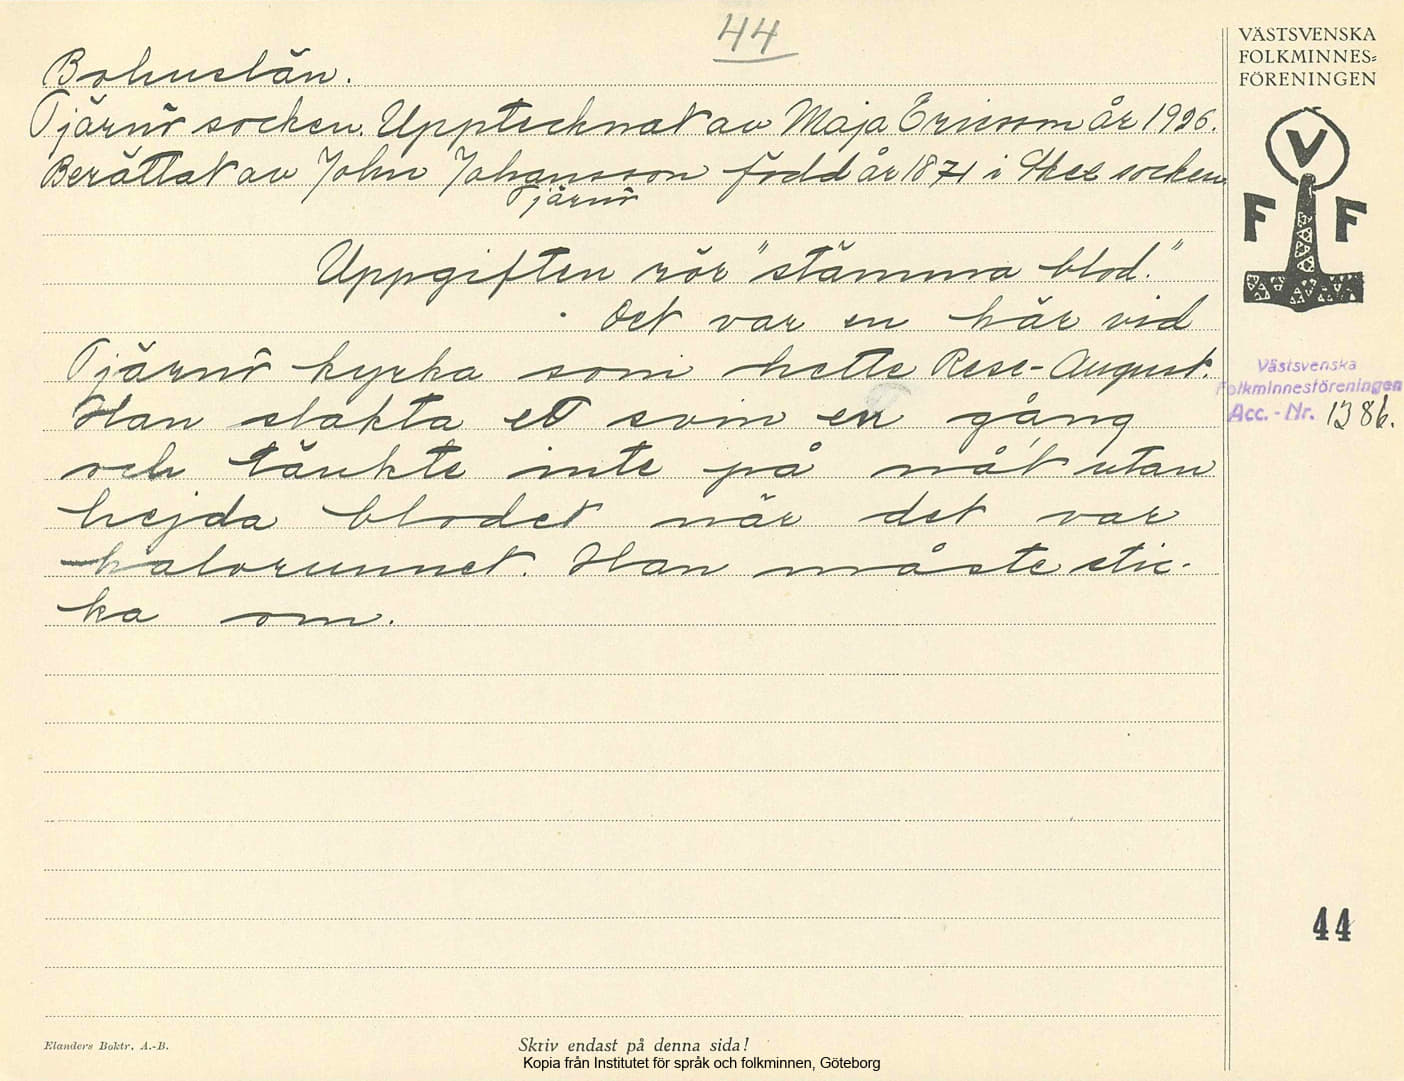 44
VÄSTSVENSKA
FOLKMINNES=
FÖRENINGEN
Bohuslän.
Tjärnö socken. Upptecknat av Maja Ericson år 1926.
Berättat av John Johansson född år 1871 i Skee socken
Tjärnö
V
F F
Uppgiften rör "stämma blod."
Det var en här vid
Tjärnö kyrka som hette Rese-August.
Västsvenska
Folkminnesföreningen
Acc. - Nr. 1386.
Han slakta et svin en gång
och tänkte inte på nåt utan
hejda blodet när det var
halvrunnet. Han måste stic-
ka om.
44
Elanders Boktr. A.-B.
Skriv endast på denna sida!
Kopia från Institutet för språk och folkminnen, Göteborg